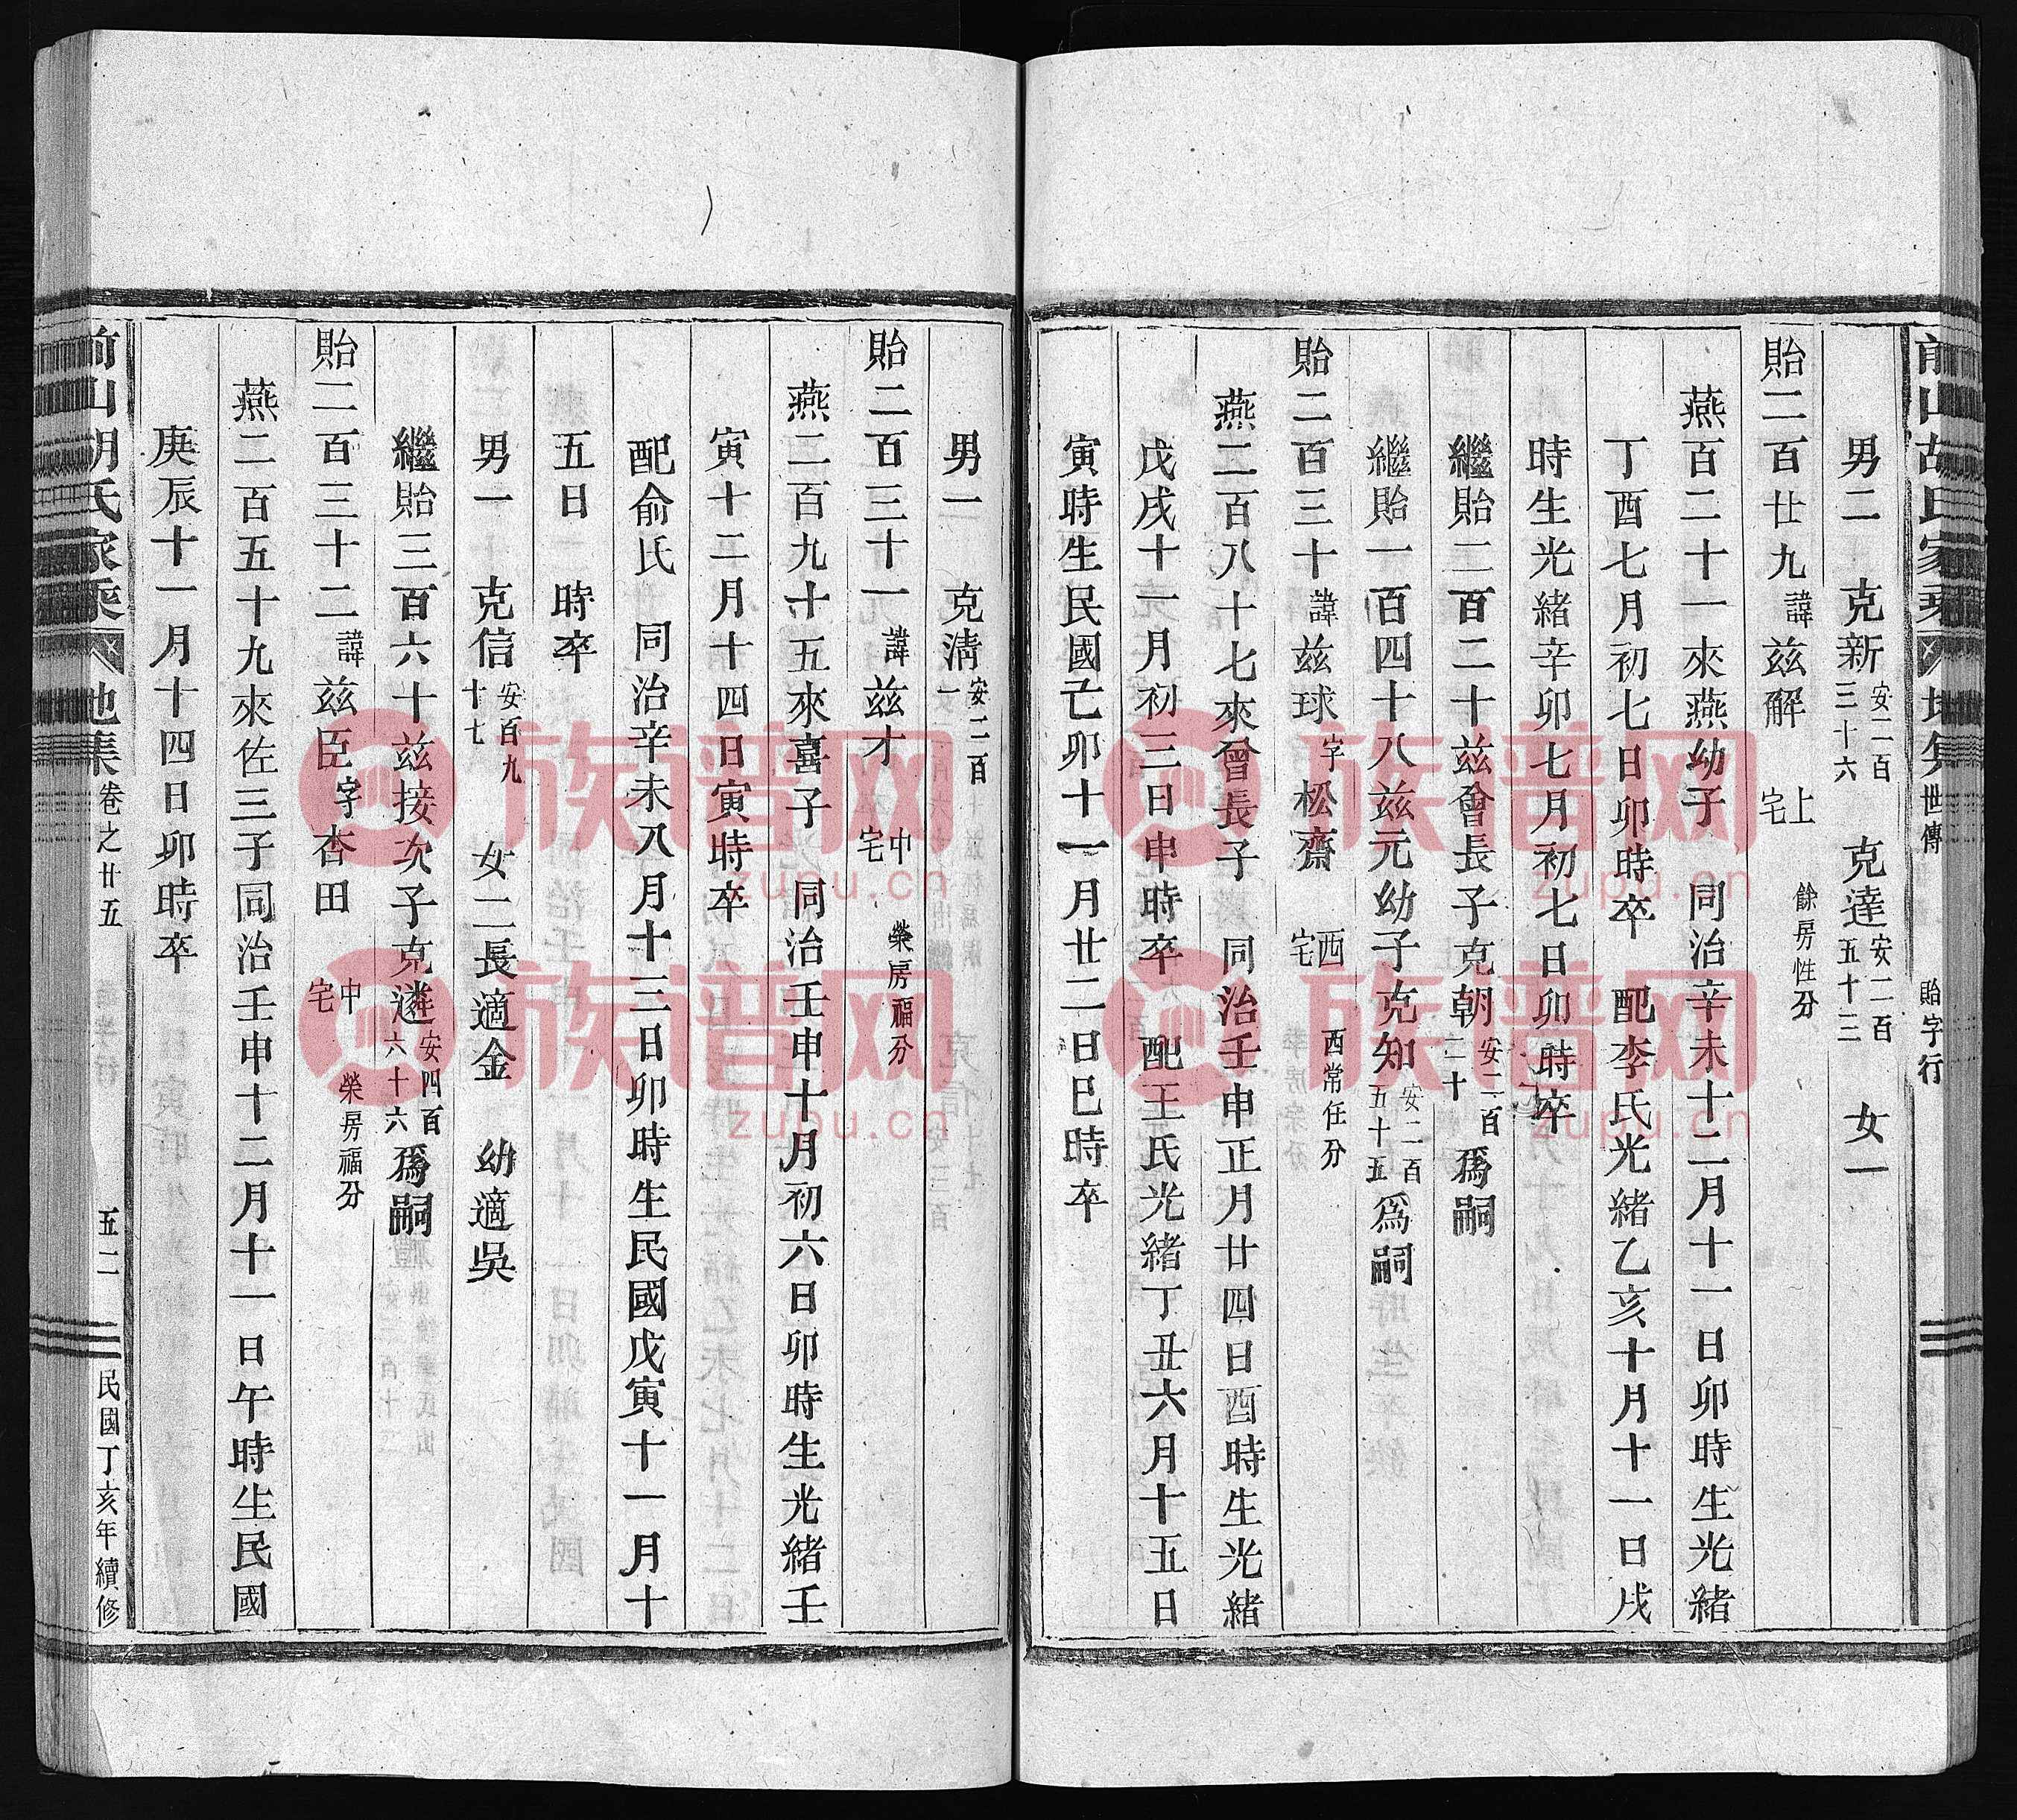 前山胡氏家乘 地集 世傳 貽字行
男二 克新 安二百三十六 克達 安二百五十三 女一
貽二百廿九 諱 茲解 上宅 餘房性分
燕百二十一來燕幼子 同治辛未十二月十一日卯時生光緒
丁酉七月初七日卯時卒 配李氏光緒乙亥十月十一日戌
時生光緒辛卯七月初七日卯時卒
繼貽二百二十茲會長子克朝 安二百二十 爲嗣
繼貽一百四十八茲元幼子克知 安二百五十五 爲嗣
貽二百三十 諱 茲球 字 松齋 西宅 西常任分
燕二百八十七來曾長子 同治壬申正月廿四日酉時生光緒
戊戌十一月初三日申時卒 配王氏光緒丁丑六月十五日
寅時生民國己卯十一月廿二日巳時卒
男一 克清 安二百一
貽二百三十一 諱 茲才 中宅 榮房福分
燕二百九十五來喜子 同治壬申十月初六日卯時生光緒壬
寅十二月十四日寅時卒
配俞氏 同治辛未八月十三日卯時生民國戊寅十一月十
五日 時卒
男一 克信 安百九十七 女二長適金 幼適吳
繼貽三百六十茲接次子克遴 安四百六十六 爲嗣
貽二百三十二 諱 茲臣 字 杏田 中宅 榮房福分
燕二百五十九來佐三子同治壬申十二月十一日午時生民國
庚辰十一月十四日卯時卒
前山胡氏家乘 地集 卷之廿五 五二 民國丁亥年續修
族谱网
zupu.cn
族谱网
zupu.cn
族谱网
zupu.cn
族谱网
zupu.cn